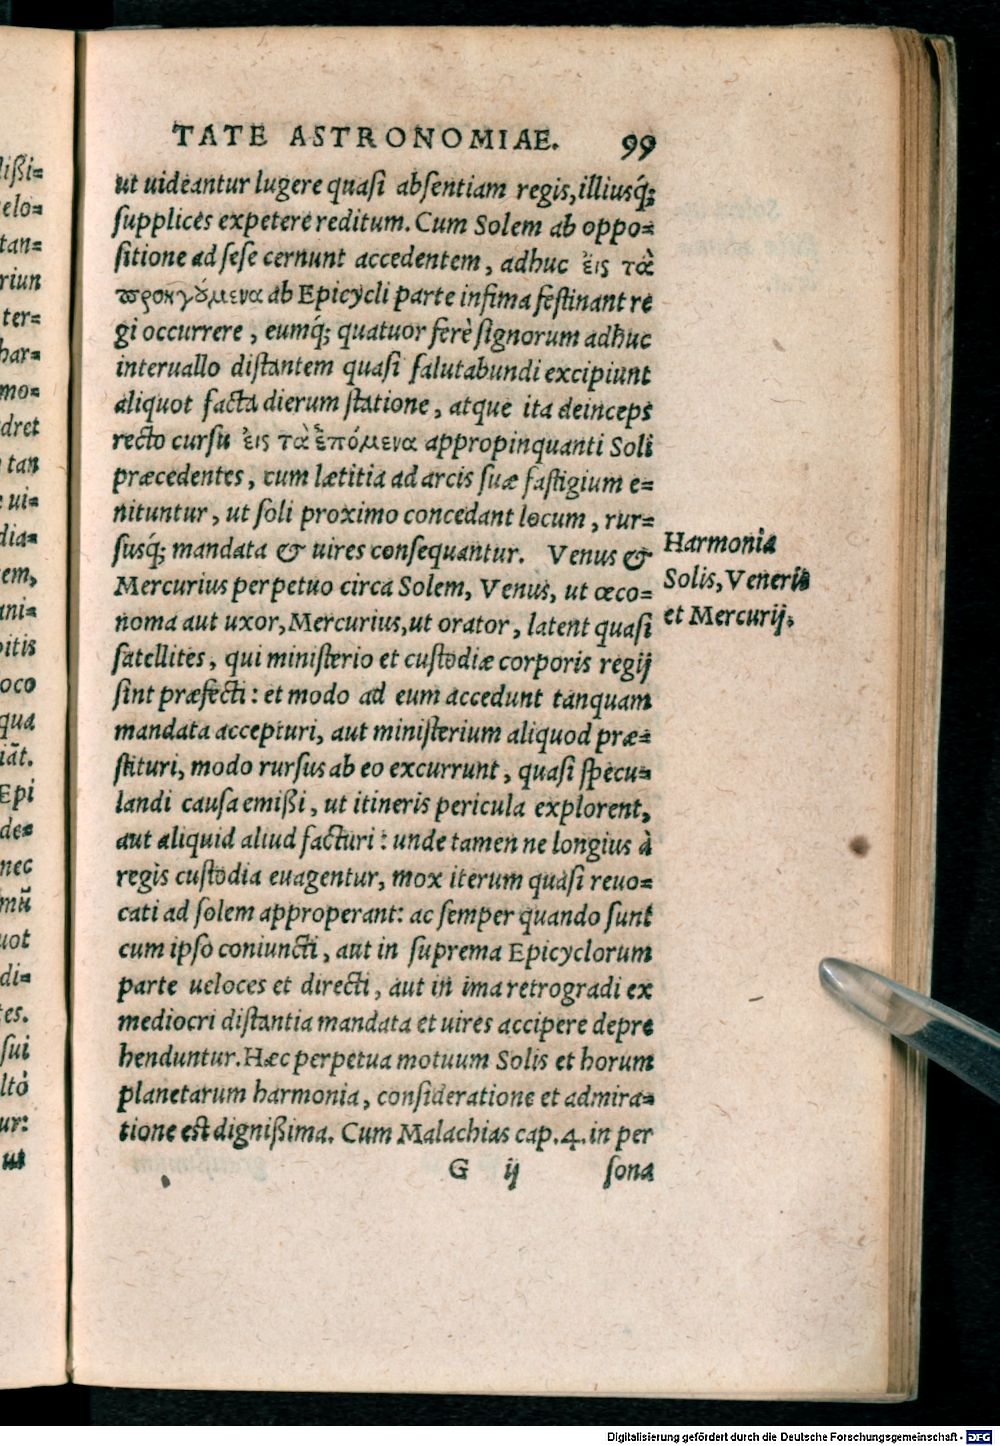 TATE ASTRONOMIAE. 99
ut uideantur lugere quasi absentiam regis, illiusq́;
supplices expetere reditum. Cum Solem ab oppo=
sitione ad sese cernunt accedentem, adhuc ἐις τὰ
προηγούμενα ab Epicycli parte infima festinant re
gi occurrere, eumq́; quatuor ferè signorum adhuc
interuallo distantem quasi salutabundi excipiunt
aliquot facta dierum statione, atque ita deinceps
recto cursu ἐις τὰ ἑπόμενα appropinquanti Soli
præcedentes, cum lætitia ad arcis suæ fastigium e=
nituntur, ut soli proximo concedant locum, rur=
susq́; mandata & uires consequantur. Venus &
Mercurius perpetuo circa Solem, Venus, ut œco=
noma aut uxor, Mercurius, ut orator, latent quasi
satellites, qui ministerio et custodiæ corporis regij
sint præfecti: et modo ad eum accedunt tanquam
mandata accepturi, aut ministerium aliquod præ=
stituri, modo rursus ab eo excurrunt, quasi specu=
landi causa emißi, ut itineris pericula explorent,
aut aliquid aliud facturi: unde tamen ne longius à
regis custodia euagentur, mox iterum quasi reuo=
cati ad solem approperant: ac semper quando sunt
cum ipso coniuncti, aut in suprema Epicyclorum
parte ueloces et directi, aut in ima retrogradi ex
mediocri distantia mandata et uires accipere depre
henduntur. Hæc perpetua motuum Solis et horum
planetarum harmonia, consideratione et admira=
tione est dignißima. Cum Malachias cap. 4. in per
G ij sona
Harmonia
Solis, Veneris
et Mercurij.
lißi=
elo=
tan=
riun
ter=
har=
mo=
dret
tan
ui=
dia=
em,
ani=
pitis
oco
qua
iāt.
Epi
de=
nec
mū
uot
di=
tes.
sui
ltò
ur:
ut
Digitalisierung gefördert durch die Deutsche Forschungsgemeinschaft - DFG